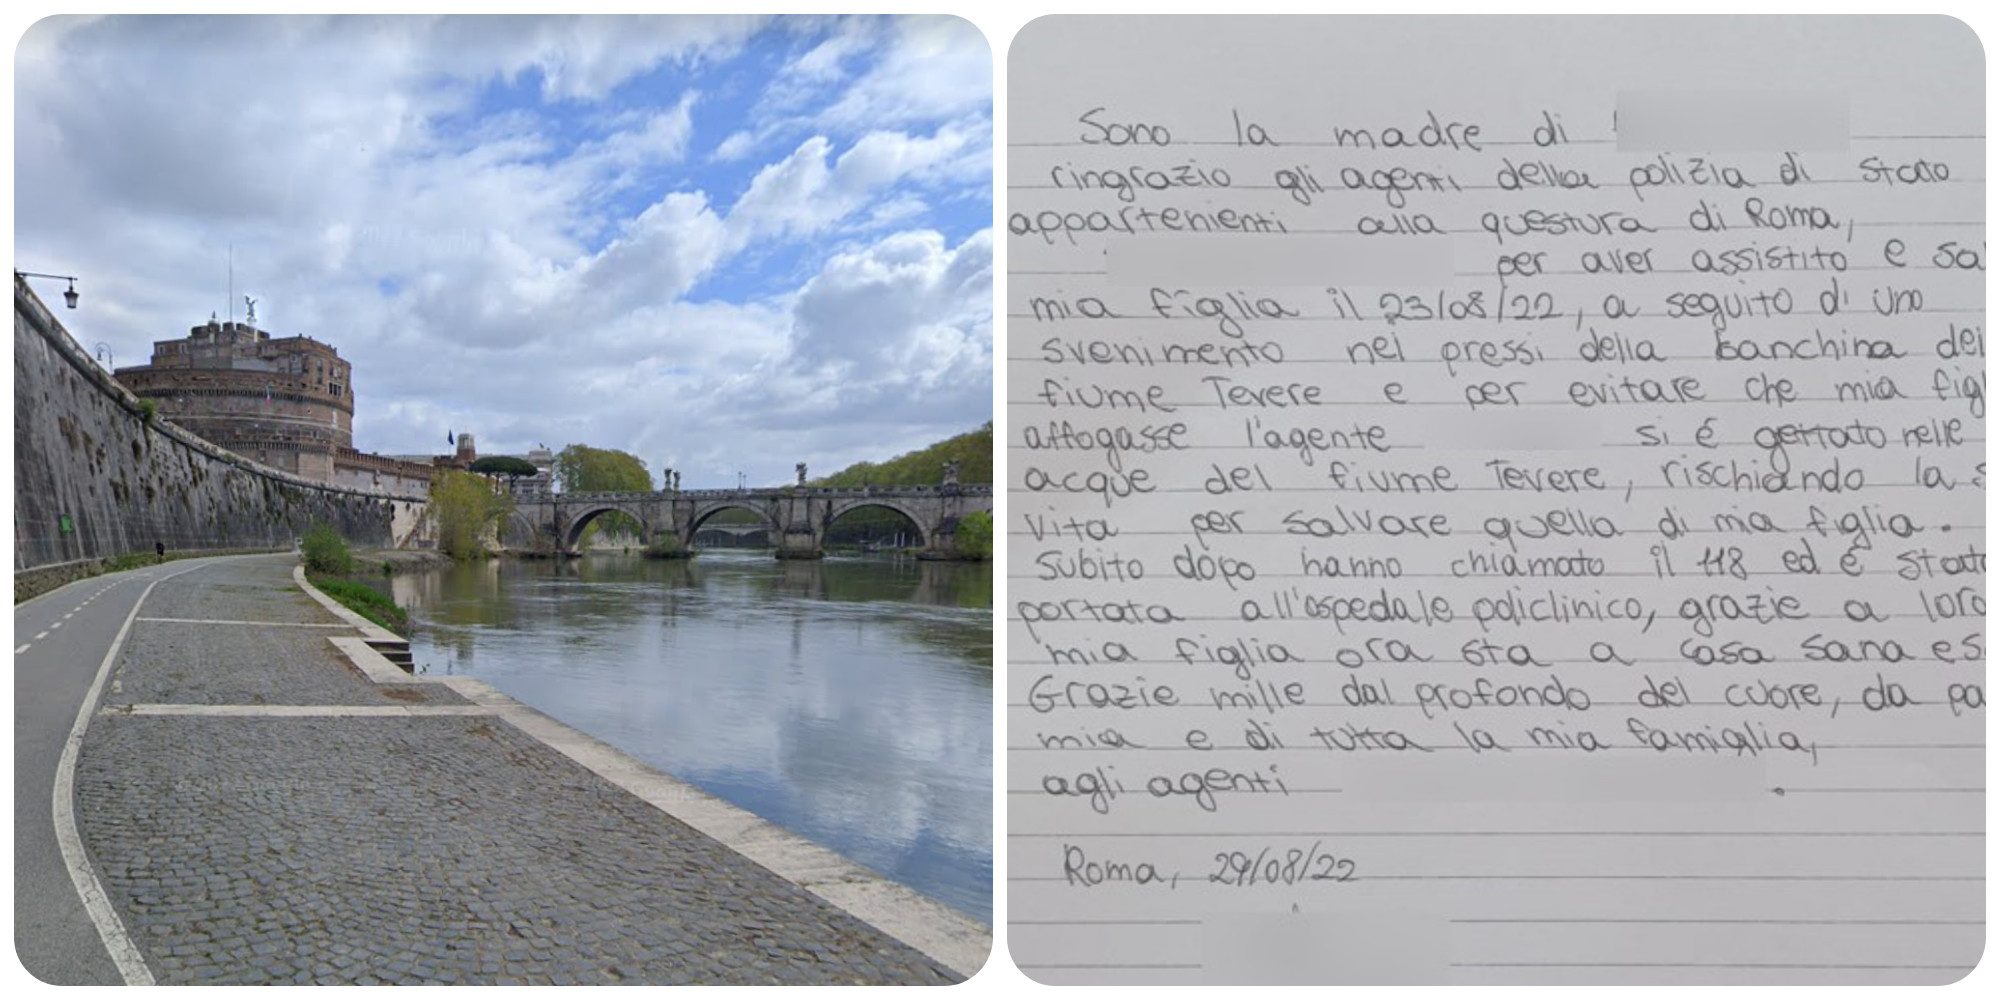 Sono la madre di
ringrazio gli agenti della polizia di stato
appartenienti alla questura di Roma,
per aver assistito e sa
mia figlia il 23/08/22, a seguito di uno
svenimento nei pressi della banchina del
fiume Tevere e per evitare che mia fig
affogasse l'agente si é gettato nelle
acque del fiume Tevere, rischiando la s
vita per salvare quella di mia figlia.
Subito dopo hanno chiamato il 118 ed é stata
portata all'ospedale policlinico, grazie a loro
mia figlia ora sta a casa sana e s
Grazie mille dal profondo del cuore, da pa
mia e di tutta la mia famiglia,
agli agenti .
Roma, 29/08/22